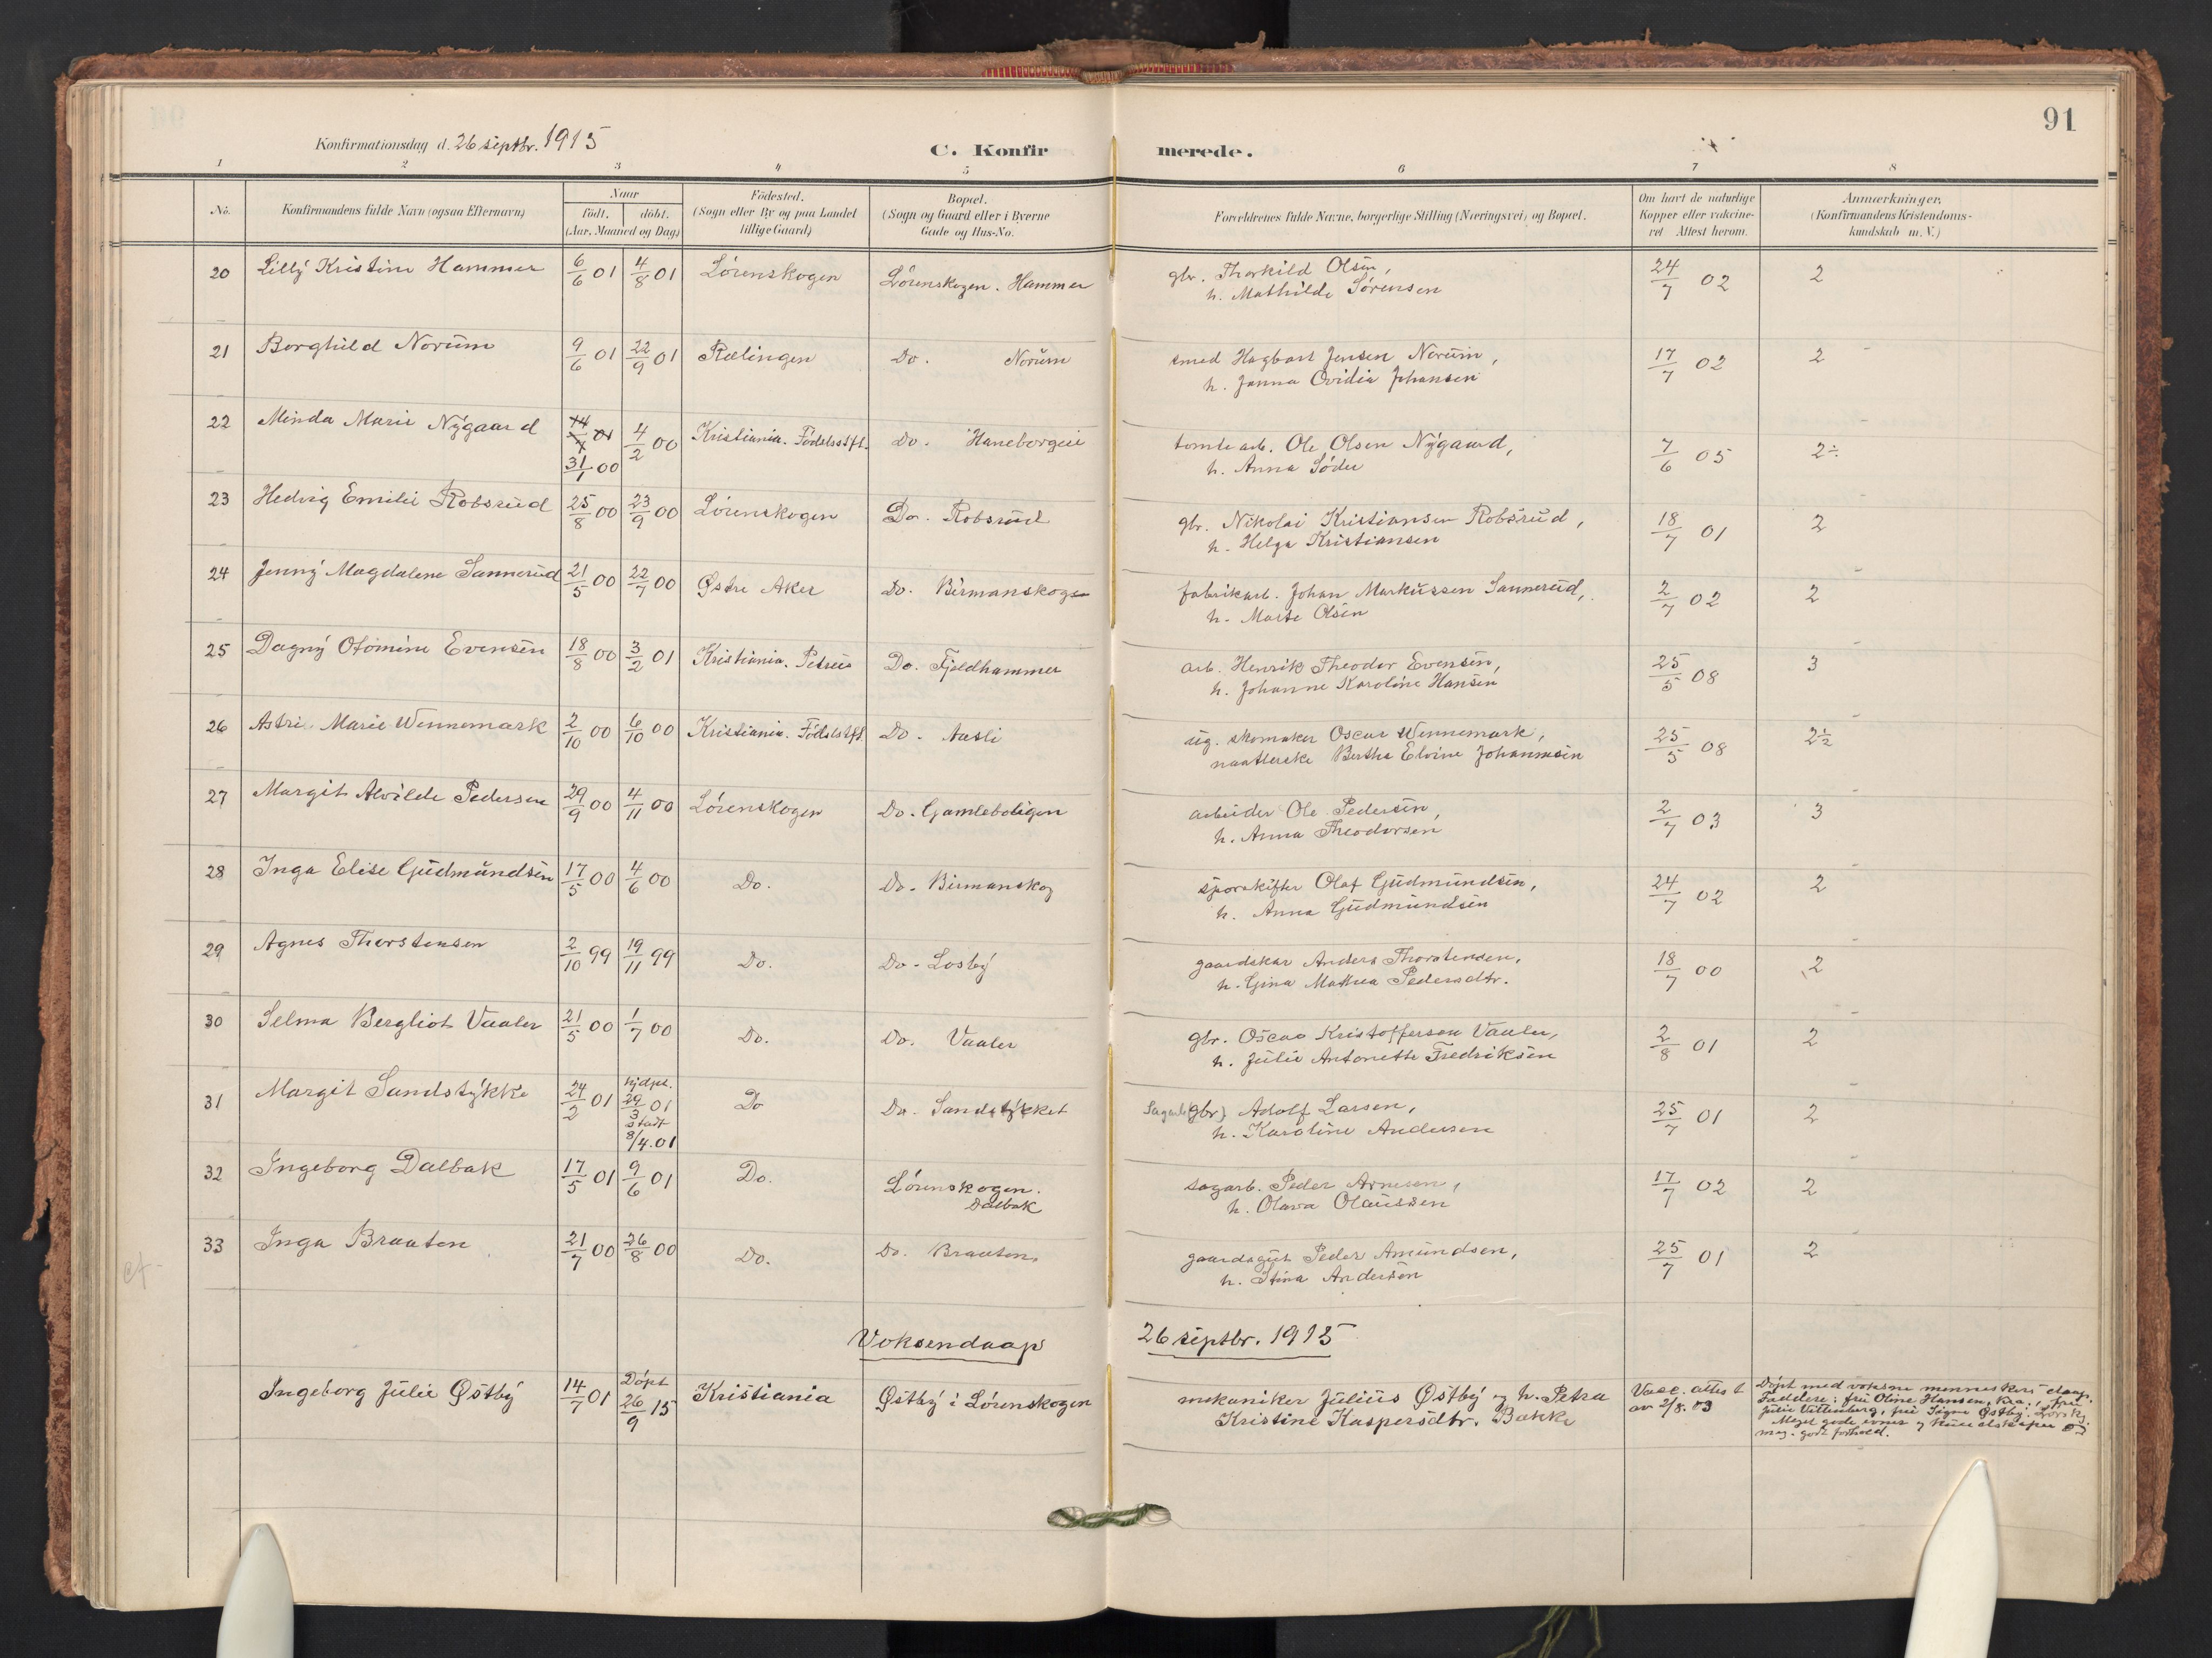 91
Konfirmationsdag d. 26 septbr. 1915
C. Konfirmerede.
1 2 3 4 5 6 7 8
No.
Konfirmandens fulde Navn (ogsaa Efternavn)
Naar
födt. döbt.
(Aar, Maaned og Dag)
Födested.
(Sogn eller By og paa Landet
tillige Gaard)
Bopæl.
(Sogn og Gaard eller i Byerne
Gade og Hus-No.
Forældrenes fulde Navne, borgerlige Stilling (Næringsvei) og Bopæl.
Om havt de naturlige
Kopper eller vakcine-
ret Attest herom.
Anmærkninger,
(Konfirmandens Kristendoms-
kundskab m. V.)
20 Lilly Kristine Hammer 6/6 01 4/8 01 Lörenskogen Lörenskogen. Hammer gbr. Thorkild Olsen, 24/7 02 2
h. Mathilde Sörensen
21 Borghild Norum 9/6 01 22/9 01 Rælingen Do. Norum smed Hagbart Jensen Norum, 17/7 02 2
h. Janna Ovidia Johansen
22 Minda Marie Nygaard 14/7 01 31/1 00 4/2 00 Kristiania. Födelsstft. Do. Haneborgeie tomtearb. Ole Olsen Nygaard, 7/6 05 2÷
h. Anna Söder
23 Hedvig Emilie Robsrud 25/8 00 23/9 00 Lörenskogen Do. Robsrud gbr. Nikolai Kristiansen Robsrud, 18/7 01 2
h. Helga Kristiansen
24 Jenny Magdalene Sannerud 21/5 00 22/7 00 Østre Aker Do. Birmanskog fabrikarb. Johan Markussen Sannerud, 2/7 02 2
h. Marte Olsen
25 Dagny Otomine Evensen 18/8 00 3/2 01 Kristiania. Petrus Do. Fjeldhammer arb. Henrik Theodor Evensen, 25/5 08 3
h. Johanne Karoline Hansen
26 Astri Marie Wennemark 2/10 00 6/10 00 Kristiania. Födelsstft. Do. Aasli ug. skomaker Oscar Wennemark, 25/5 08 2½
naatlerske Bertha Elvine Johannesen
27 Margit Alvilde Pedersen 29/9 00 4/11 00 Lörenskogen Do. Gamleboligen arbeider Ole Pedersen, 2/7 03 3
h. Anna Theodorsen
28 Inga Elise Gudmundsen 17/5 00 4/6 00 Do. Do. Birmanskog sporskifter Olaf Gudmundsen, 24/7 02 2
h. Anna Gudmundsen
29 Agnes Thorstensen 2/10 99 19/11 99 Do. Do. Losby gaardskar Anders Thorstensen, 18/7 00 2
h. Gina Mathea Pedersdtr.
30 Selma Bergliot Vaaler 21/5 00 1/7 00 Do. Do. Vaaler gbr. Oscar Kristoffersen Vaaler, 2/8 01 2
h. Julie Antonette Fredriksen
31 Margit Sandstykke 24/2 01 hjdpt. 29/3 01 stadf 8/4.01 Do Do. Sandstykket Sagarb. (gbr) Adolf Larsen, 25/7 01 2
h. Karoline Andersen
32 Ingeborg Dalbak 17/5 01 9/6 01 Do. Lörenskogen. Dalbak sagarb. Peder Arnesen, 17/7 02 2
h. Olava Olaussen
33 Inga Braaten 21/7 00 26/8 00 Do. Do. Braaten gaardsgut Peder Amundsen, 25/7 01 2
h. Stina Andersen
Voksendaap 26 septbr. 1915
Ingeborg Julie Østby 14/7 01 Döpt 26/9 15 Kristiania Østby i Lörenskogen mekaniker Julius Østby og h. Petra
Kristine Kaspersdtr. Bække
Vacc. attest
av 2/8.03
Döpt med voksne menneskers daap.
Faddere: fru Oline Hansen, Kra., fru
Julie Vittenberg, fru Signe Østby. Lörskg.
Meget gode evner og kundskaper og
meg. godt forhold.